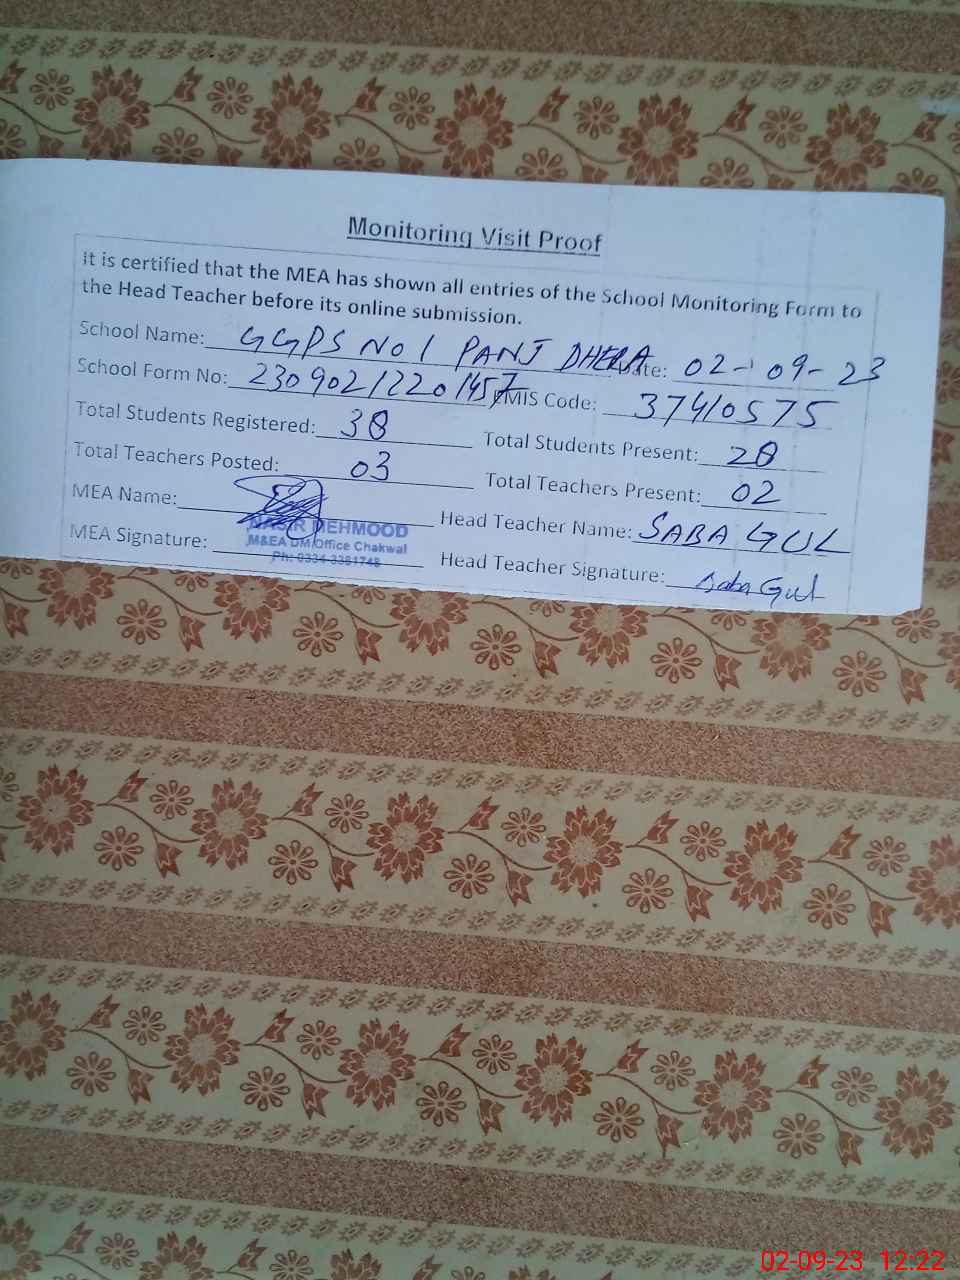 Monitoring Visit Proof
It is certified that the MEA has shown all entries of the School Monitoring Form to
the Head Teacher before its online submission.
School Name: GGPS NO 1 PANJ DHERA Date: 02-09-23
School Form No: 23090212201457 EMIS Code: 37410575
Total Students Registered: 38 Total Students Present: 28
Total Teachers Posted: 03 Total Teachers Present: 02
MEA Name: Head Teacher Name: SABA GUL
NASIR MEHMOOD
M&EA DM Office Chakwal
MEA Signature: Head Teacher Signature: Saba Gul
Ph: 0334-3381748
02-09-23 12:22